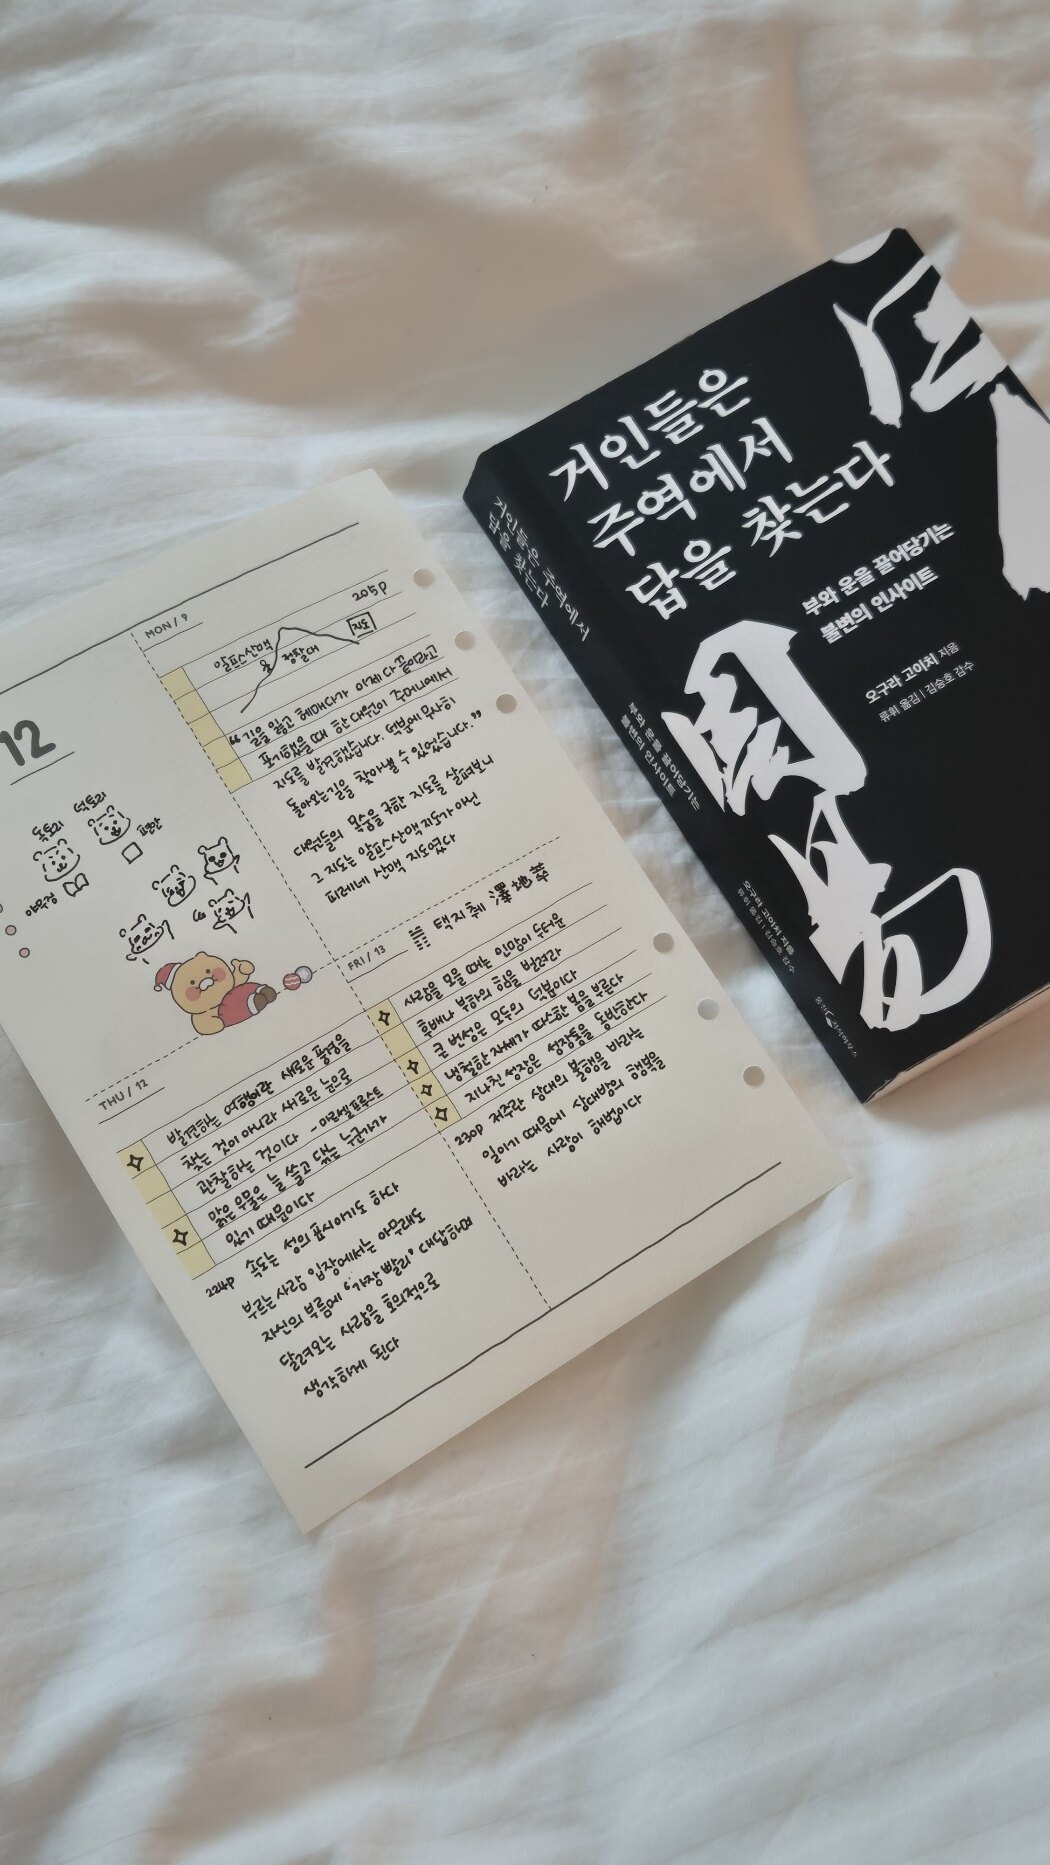 12
MON / 9
205p
알프스산맥
정찰대
지도
“길을 잃고 헤매다가 이제 다 끝이라고
포기했을 때 한 대원이 주머니에서
지도를 발견했습니다. 덕분에 무사히
돌아오는 길을 찾아낼 수 있었습니다.”
대원들의 목숨을 구한 지도를 살펴보니
그 지도는 알프스산맥 지도가 아닌
피레네 산맥 지도였다
THU / 12
발견하는 여행이란 새로운 풍경을
찾는 것이 아니라 새로운 눈으로
관찰하는 것이다 - 마르셀 프루스트
맑은 우물은 늘 쓸고 닦는 누군가가
있기 때문이다
224p 속도는 성의 표시이기도 하다
부르는 사람 입장에서는 아무래도
자신의 부름에 ‘가장 빨리’ 대답하며
달려오는 사람을 호의적으로
생각하게 된다
FRI / 13
택지췌 澤地萃
사람을 모을 때는 인망이 두터운
후배나 부하의 힘을 빌려라
큰 번성은 모두의 덕분이다
냉철한 자세가 따스한 봄을 부른다
지나친 성장은 성장통을 동반한다
230p 저주란 상대의 불행을 바라는
일이기 때문에 상대방의 행복을
바라는 사랑이 해법이다
거인들은
주역에서
답을 찾는다
부와 운을 끌어당기는
불변의 인사이트
오구라 고이치 지음
류휘 옮김 | 김승호 감수
周易
거인들은 주역에서
답을 찾는다
부와 운을 끌어당기는
불변의 인사이트
오구라 고이치 지음
류휘 옮김 | 김승호 감수